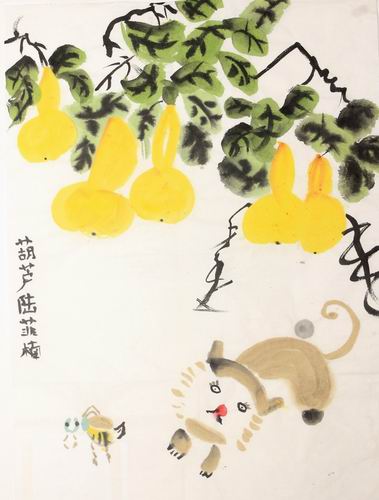 葫芦陆菲楠